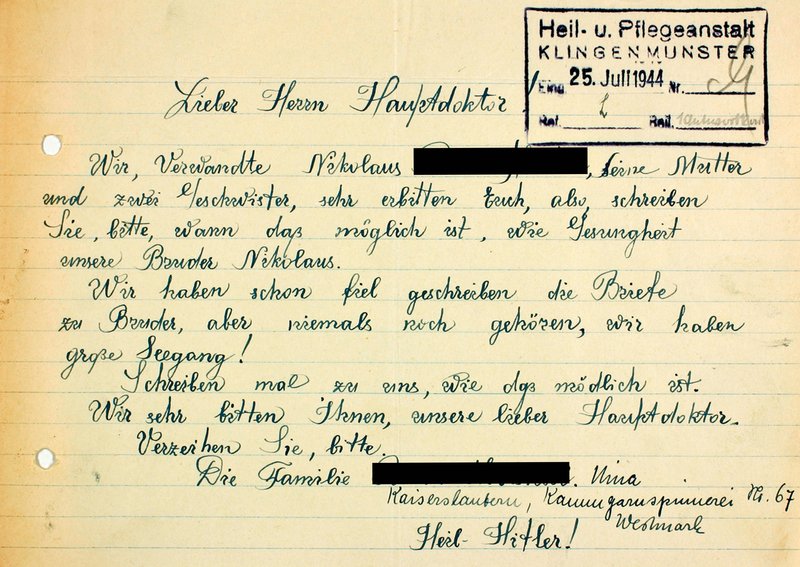 Heil- u. Pflegeanstalt
KLINGENMÜNSTER
Eing. 25. Juli 1944 Nr.
Ref. Beil.
Lieber Herrn Hauptdoktor
Wir, Verwandte Nikolaus , seine Mutter
und zwei Geschwister, sehr erbitten Euch, also, schreiben
Sie, bitte, wann daß möglich ist, wie Gesungheit
unsere Bruder Nikolaus.
Wir haben schon fiel geschreiben die Briefe
zu Bruder, aber niemals noch gehören, wir haben
große Seegang!
Schreiben mal zu uns, wie daß mödlich ist.
Wir sehr bitten Ihnen, unsere lieber Hauptdoktor.
Verzeihen Sie, bitte.
Die Familie Nina
Kaiserslautern, Kammgarnspinnerei Nr. 67
Westmark
Heil-Hitler!